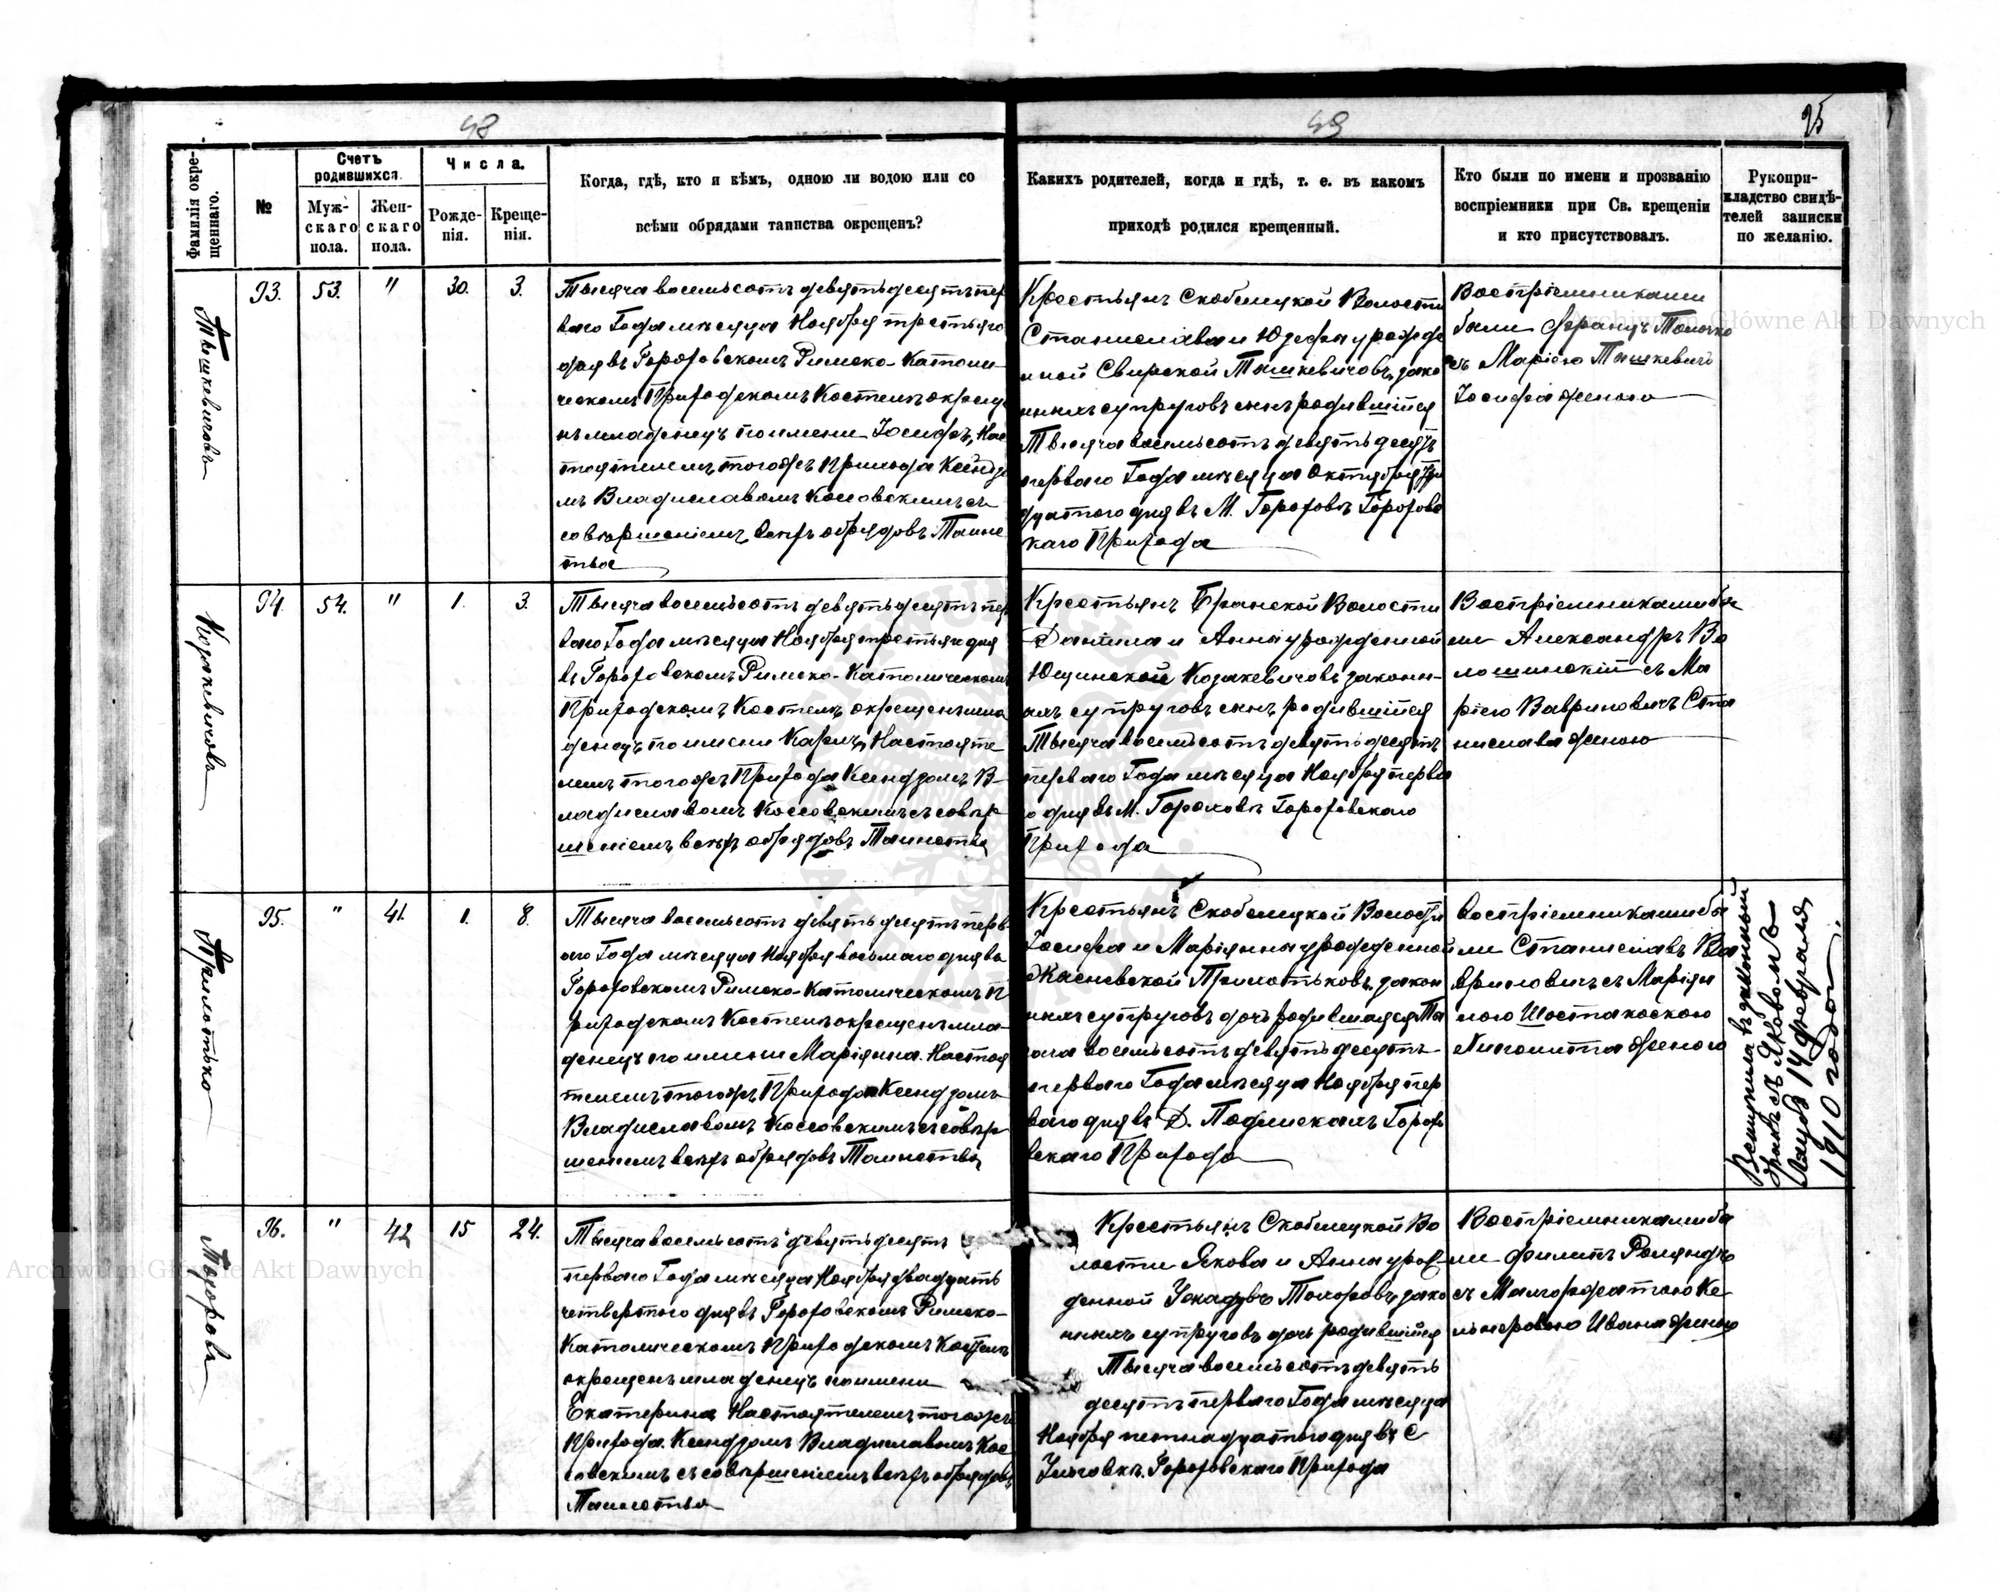 48
49
95
Фамилія окре-
щеннаго.
№
Счетъ
родившихся.
Муж-
скаго
пола.
Жен-
скаго
пола.
Числа.
Рожде-
нія.
Креще-
нія.
Когда, гдѣ, кто и кѣмъ, одною ли водою или со
всѣми обрядами таинства окрещенъ?
Какихъ родителей, когда и гдѣ, т. е. въ какомъ
приходѣ родился крещенный.
Кто были по имени и прозванію
воспріемники при Св. крещеніи
и кто присутствовалъ.
Рукопри-
кладство свидѣ-
телей записки
по желанію.
Ташкевичовъ
93. 53. " 30. 3.
Тысяча восемьсотъ девятьдесятъ пер
ваго Года мѣсяца Ноября третьяго
дня въ Гороховскомъ Римско-Католи-
ческомъ Приходскомъ Костелѣ окреще
нъ младенецъ по имени Іосифъ, Нас
тоятелемъ тогожъ Прихода Ксендзо
мъ Владиславомъ Коссовскимъ съ
совершеніемъ всѣхъ обрядовъ Таинс
тва
Крестьянъ Скобелецкой Волости
Станислава и Юзефы урожде
нной Свирской Ташкевичовъ, зако
нныхъ супруговъ сынъ родившійся
Тысяча восемьсотъ девятьдесятъ
перваго Года мѣсяца Октября три
дцатого дня въ М. Гороховѣ Горохов
скаго Прихода
Воспріемниками
были Францъ
съ Маріею Ташкевичъ
Іосифа женою
Козакевичовъ
94. 54. " 1. 3.
Тысяча восемьсотъ девятьдесятъ пер
ваго Года мѣсяца Ноября третьяго дня
въ Гороховскомъ Римско-Католическомъ
Приходскомъ Костелѣ окрещенъ мла
денецъ по имени Карлъ, Настояте
лемъ тогожъ Прихода Ксендзомъ В-
ладиславомъ Коссовскимъ съ совер
шеніемъ всѣхъ обрядовъ Таинства
Крестьянъ Бранской Волости
Данила и Анны урожденной
Ющинской Козакевичовъ законн-
ыхъ супруговъ сынъ родившійся
Тысяча восемьсотъ девятьдесятъ
перваго Года мѣсяца Ноября перва
го дня въ М. Гороховѣ Гороховскаго
Прихода
Воспріемниками бы
ли Александръ Во
лошинскій съ Ма
ріею Вавриновичъ Ста
нислава женою
95. " 41. 1. 8.
Тысяча восемьсотъ девятьдесятъ перв
аго Года мѣсяца Ноября восьмаго дня въ
Гороховскомъ Римско-Католическомъ П
риходскомъ Костелѣ окрещенъ мла-
денецъ по имени Маріянна. Настоя
телемъ тогожъ Прихода Ксендзомъ
Владиславомъ Коссовскимъ съ совер
шеніемъ всѣхъ обрядовъ Таинства
Крестьянъ Скобелецкой Волости
Іосифа и Маріянны урожденной
законн
ныхъ супруговъ дочь родившаяся Ты
сяча восемьсотъ девятьдесятъ
перваго Года мѣсяца Ноября пер
ваго дня въ Д. Горохо
вскаго Прихода
воспріемниками бы
ли Станиславъ Ва
вриновичъ съ Марціи
женою
Вступила въ законный
бракъ съ Яковомъ
14 февраля
1910 года.
96. " 42 15 24.
Тысяча восемьсотъ девятьдесятъ
перваго Года мѣсяца Ноября двадцать
четвертого дня въ Гороховскомъ Римско-
Католическомъ Приходскомъ Костелѣ
окрещенъ младенецъ по имени
Екатерина Настоятелемъ тогожъ
Прихода Ксендзомъ Владиславомъ Кос
совскимъ съ совершеніемъ всѣхъ обрядовъ
Таинства
Крестьянъ Скобелецкой Во
лости Якова и Анны урож-
денной зако
нныхъ супруговъ дочь родившійся
Тысяча восемьсотъ девять
десятъ перваго Года мѣсяца
Ноября петнадцатого дня въ С
Гороховскаго Прихода
Воспріемниками бы
ли Филипъ
съ Малгоржатою Ке
льнеровою Ивана женою
Archiwum Główne Akt Dawnych
Archiwum Główne Akt Dawnych